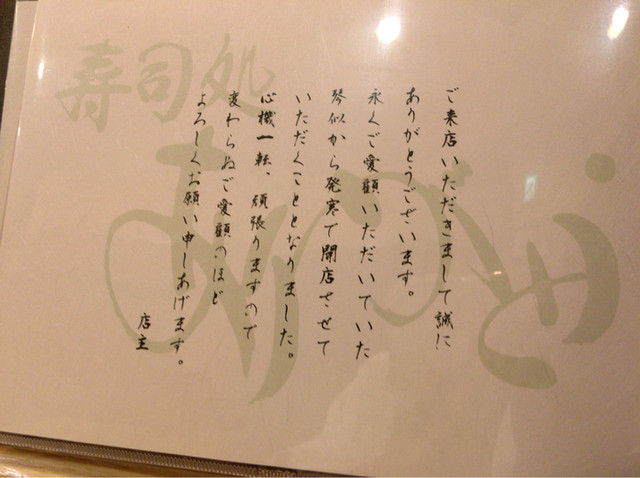 寿司処
ご来店いただきまして誠に
ありがとうございます。
永くご愛顧いただいていた
琴似から発寒で開店させて
いただくこととなりました。
心機一転、頑張りますので
変わらぬご愛顧のほど
よろしくお願い申しあげます。
店主